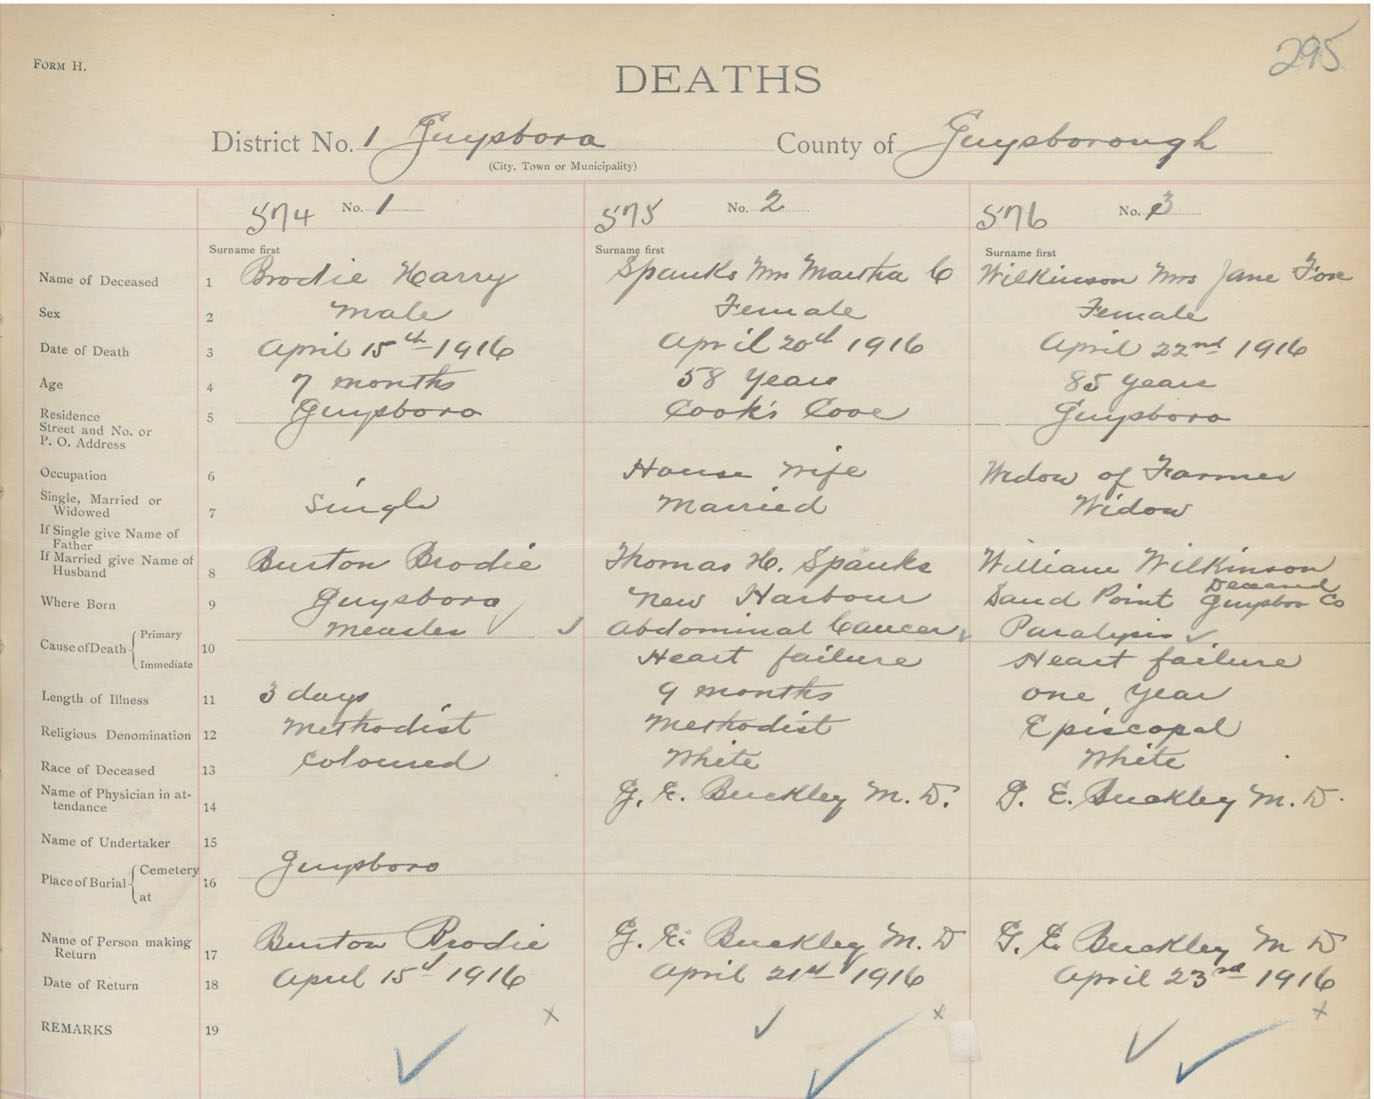 295
FORM H.
DEATHS
District No. 1 Guysboro County of Guysborough
(City, Town or Municipality)
574 No. 1 575 No. 2 576 No. 3
Surname first Surname first Surname first
Name of Deceased 1 Brodie Harry Spanks Mrs Martha C Wilkinson Mrs Jane Fox
Sex 2 Male Female Female
Date of Death 3 April 15th 1916 April 20th 1916 April 22nd 1916
Age 4 7 months 58 Years 85 years
Residence
Street and No. or
P. O. Address 5 Guysboro Cook's Cove Guysboro
Occupation 6 House wife Widow of Farmer
Single, Married or
Widowed 7 Single Married Widow
If Single give Name of
Father
If Married give Name of
Husband 8 Burton Brodie Thomas H. Spanks William Wilkinson
Deceased
Where Born 9 Guysboro New Harbour Sand Point Guysboro Co
Cause of Death Primary 10 Measles Abdominal Cancer Paralysis
Immediate Heart failure Heart failure
Length of Illness 11 3 days 9 months one Year
Religious Denomination 12 Methodist Methodist Episcopal
Race of Deceased 13 Coloured White White
Name of Physician in at-
tendance 14 G. E. Buckley M. D. G. E. Buckley M. D.
Name of Undertaker 15
Place of Burial Cemetery 16 Guysboro
at
Name of Person making
Return 17 Burton Brodie G. E. Buckley M. D G. E. Buckley M D
Date of Return 18 April 15th 1916 April 21st 1916 April 23rd 1916
REMARKS 19